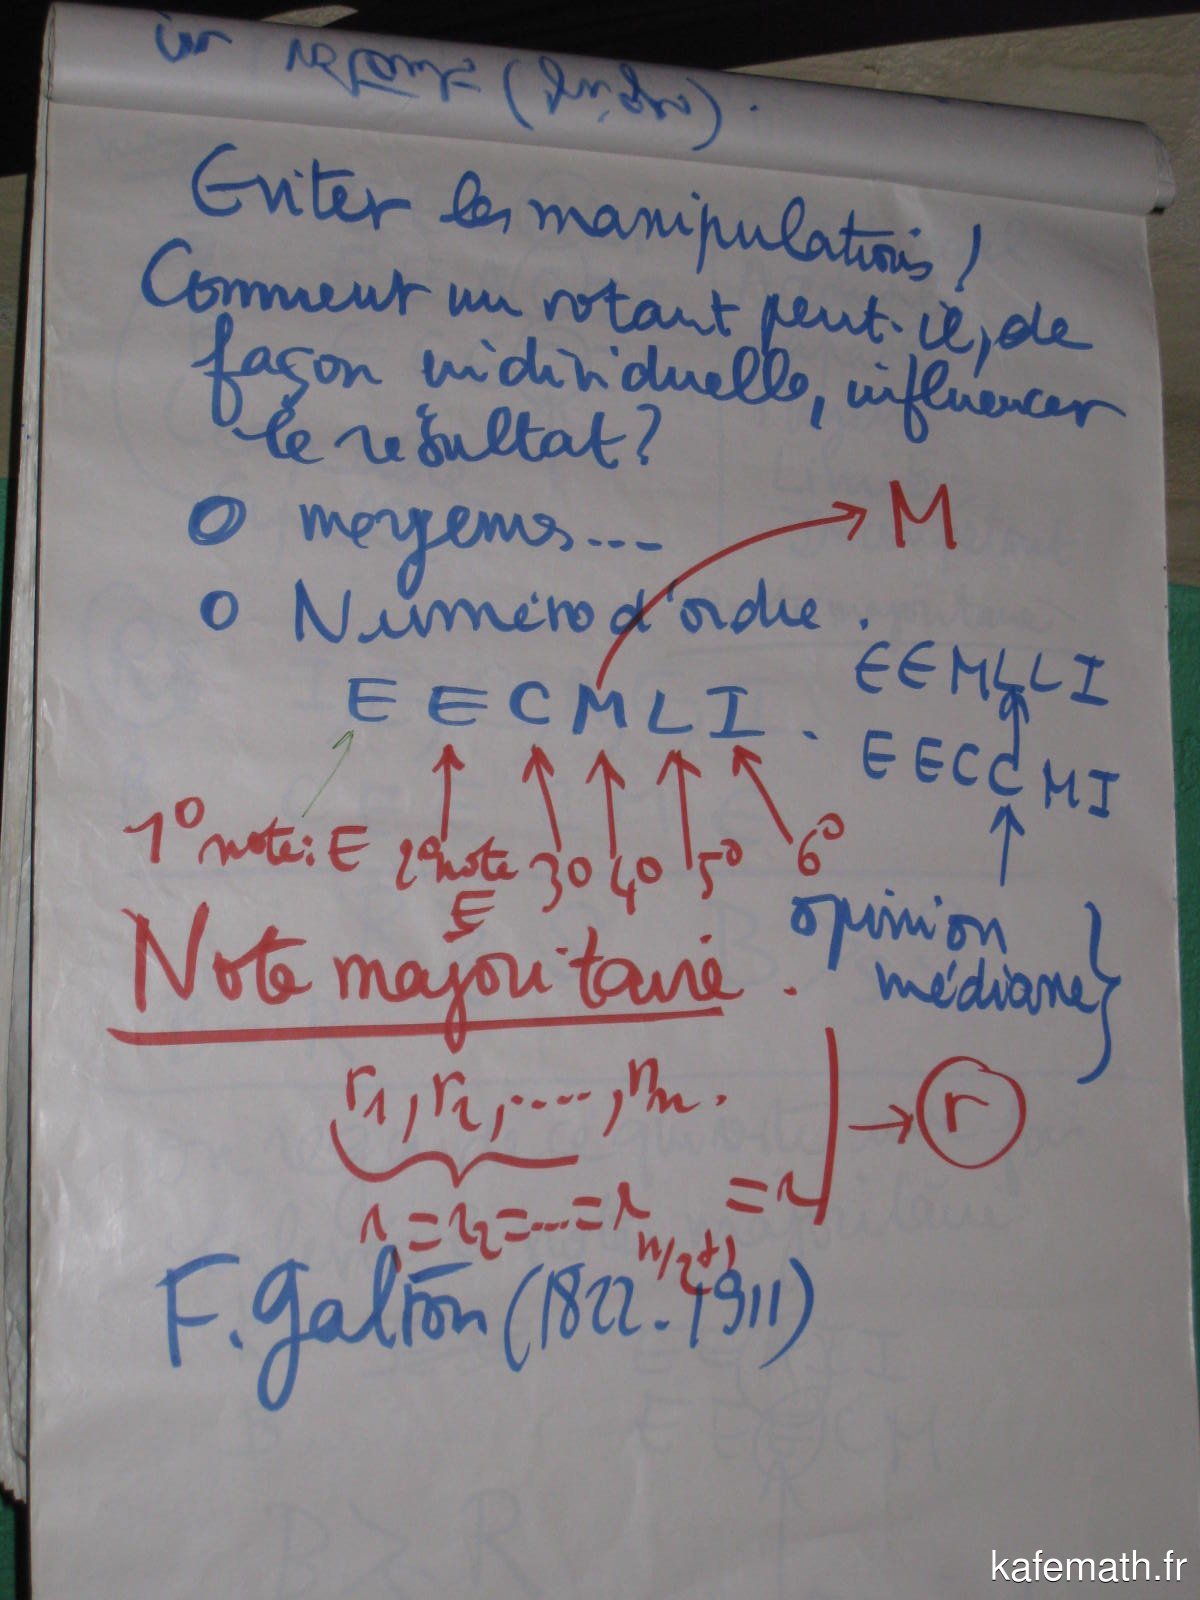 Eviter les manipulations !
Comment un votant peut-il, de
façon individuelle, influencer
le résultat ?
o moyenne...
M
o Numéro d'ordre.
E E C M L I .
E E M L L I
E E C C M I
1° note: E 2° note 3° 4° 5° 6°
E
opinion
médiane
Note majoritaire .
r1, r2, ...., rn.
→ r
r1 = r2 = ... = r n/2+1 = r
F. Galton (1822-1911)
kafemath.fr